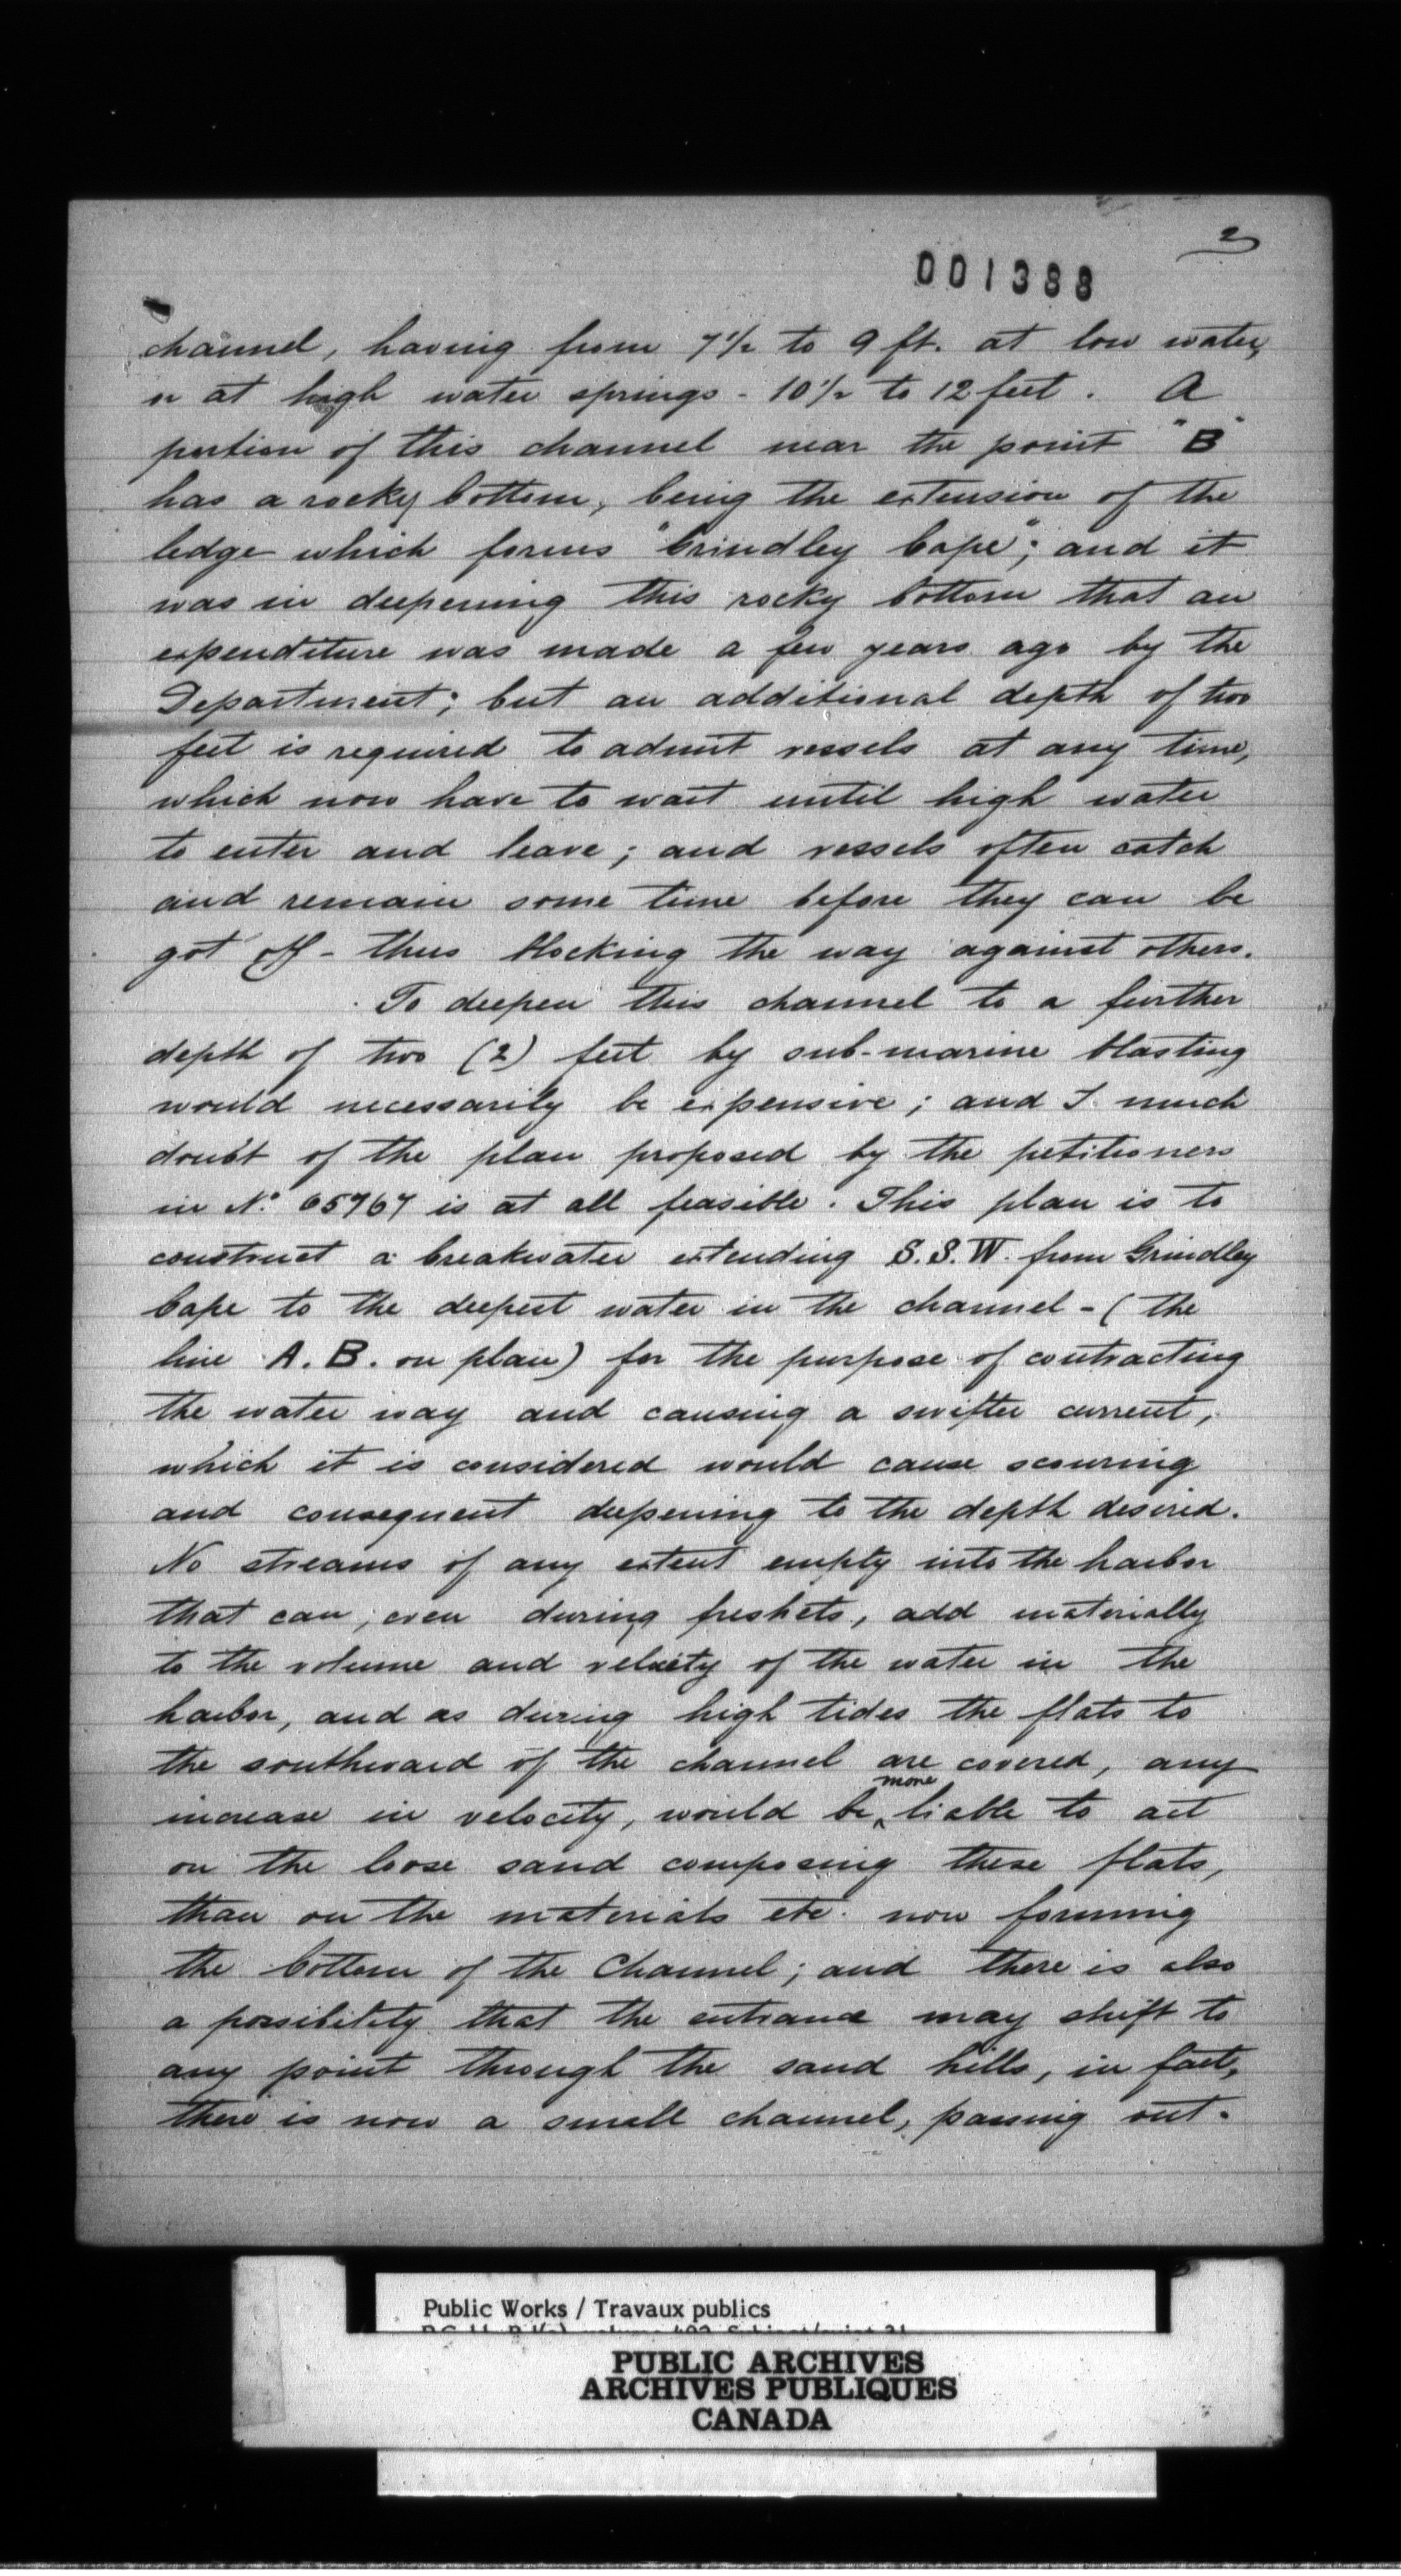 2
001388
channel, having from 7½ to 9 ft. at low water,
or at high water springs - 10½ to 12 feet. A
portion of this channel near the point "B"
has a rocky bottom, being the extension of the
ledge which forms "Grindley Cape"; and it
was in deepening this rocky bottom that an
expenditure was made a few years ago by the
Department; but an additional depth of two
feet is required to admit vessels at any time,
which now have to wait until high water
to enter and leave; and vessels often catch
and remain some time before they can be
got off - thus blocking the way against others.
To deepen this channel to a further
depth of two (2) feet by sub-marine blasting
would necessarily be expensive; and I much
doubt of the plan proposed by the petitioners
in No. 65767 is at all feasible. This plan is to
construct a breakwater extending S.S.W. from Grindley
Cape to the deepest water in the channel - (the
line A.B. on plan) for the purpose of contracting
the water way and causing a swifter current,
which it is considered would cause scouring
and consequent deepening to the depth desired.
No streams of any extent empty into the harbor
that can, even during freshets, add materially
to the volume and velocity of the water in the
harbor, and as during high tides the flats to
the southward of the channel are covered, any
increase in velocity, would be more liable to act
on the loose sand composing these flats,
than on the materials etc. now forming
the bottom of the Channel; and there is also
a possibility that the entrance may shift to
any point through the sand hills, in fact,
there is now a small channel, passing out.
Public Works / Travaux publics
PUBLIC ARCHIVES
ARCHIVES PUBLIQUES
CANADA